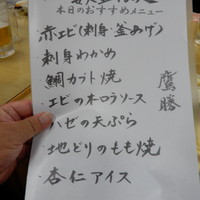 本日のおすすめメニュー
赤エビ(刺身・釜あげ)
刺身わかめ
鯛カブト焼
エビのホロラソース
ハゼの天ぷら
地どりのもも焼
杏仁アイス
鷹勝